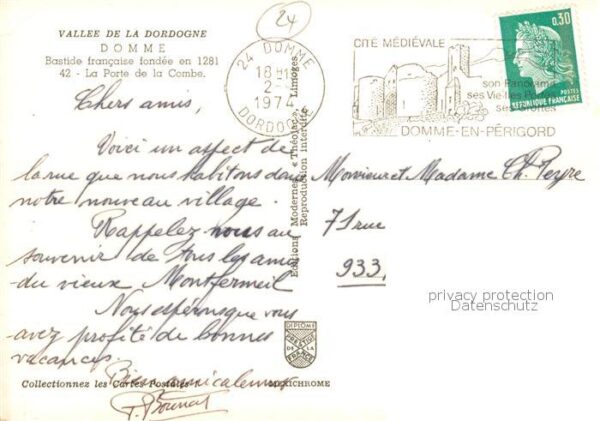 24
VALLEE DE LA DORDOGNE
DOMME
Bastide française fondée en 1281
42 - La Porte de la Combe.
Chers amis,
Voici un aspect de
la rue que nous habitons dans
notre nouveau village.
Rappelez nous au
souvenir de tous les amis
du vieux Montfermeil
Nous espérons que vous
avez profité de bonnes
vacances.
Bien amicalement
Collectionnez les Cartes Postales
MEXICHROME
Editions Modernes « Théojac » Limoges
Reproduction interdite
DIPLOME PRESTIGE DE LA FRANCE
24 DOMME
18 H
2-
1974
DORDOGNE
CITÉ MÉDIÉVALE
son Panorama
ses Vieilles Portes
ses Grottes
DOMME-EN-PÉRIGORD
0,30
POSTES
REPUBLIQUE FRANÇAISE
Monsieur et Madame Ch. Peyre
71 rue
933,
privacy protection
Datenschutz